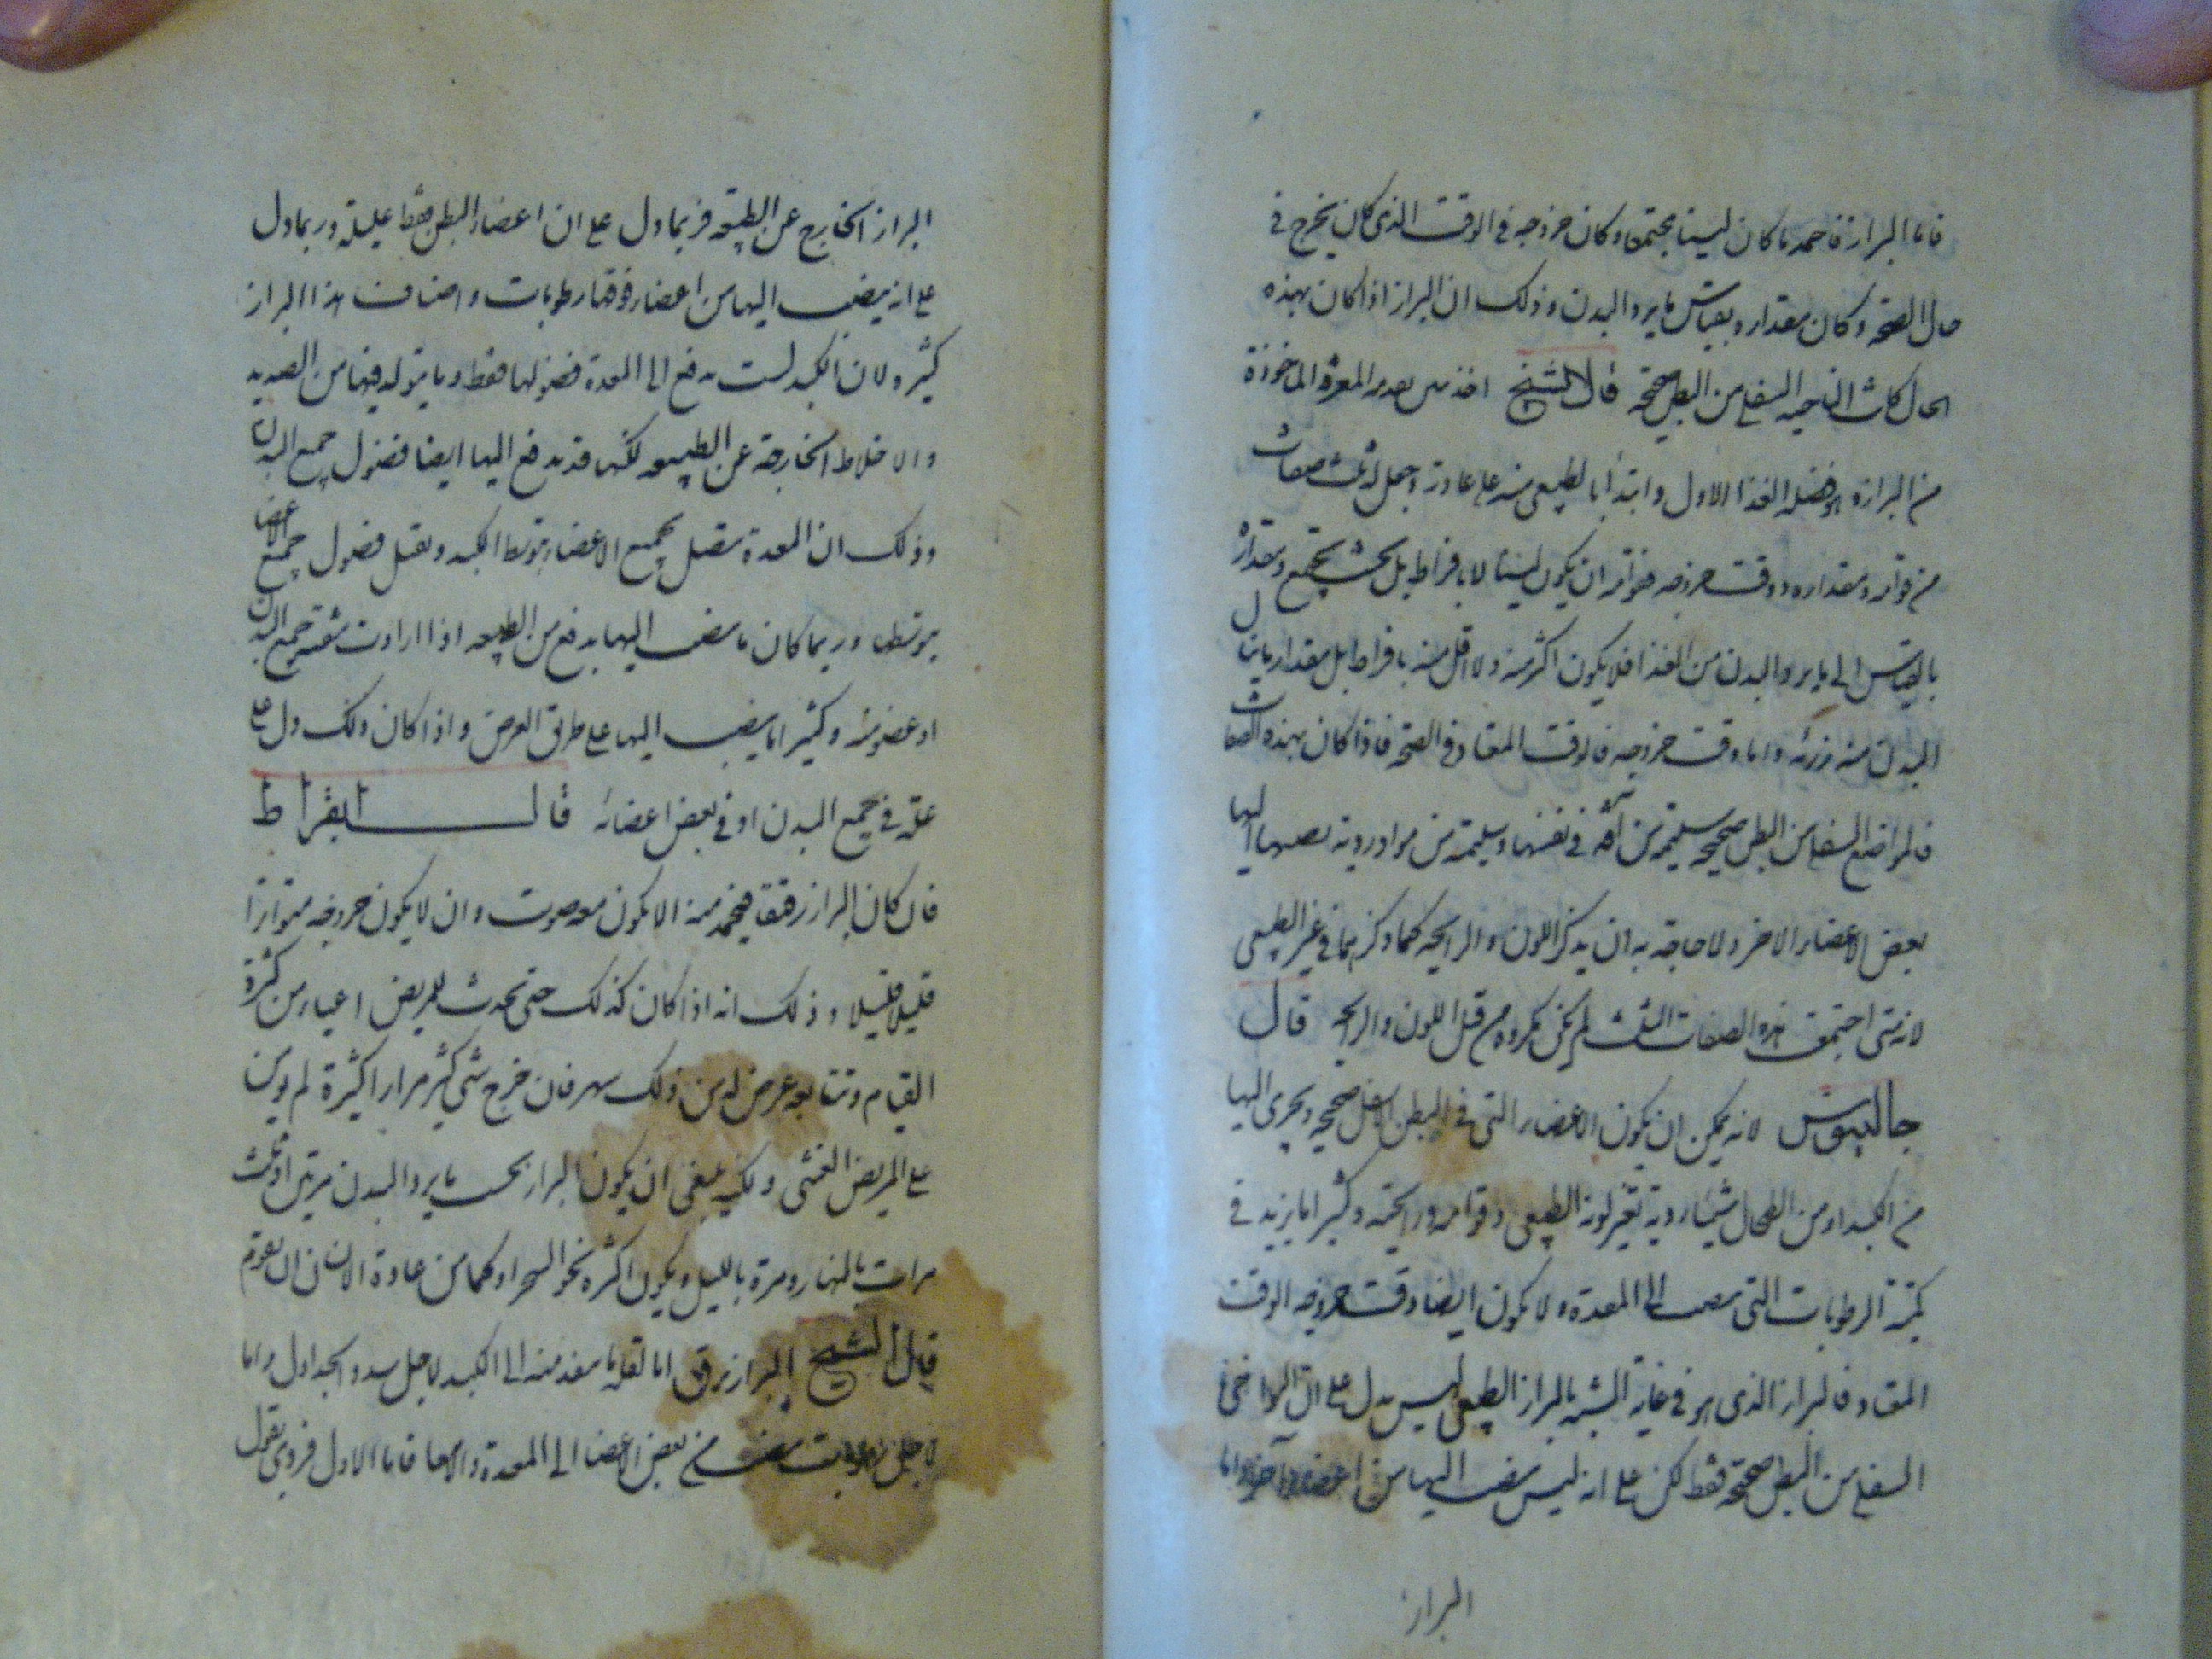 فاما البراز فاحمده ما كان لينا مجتمعا وكان خروجه فى الوقت الذى كان يخرج فى
حال الصحة وكان مقداره بقياس ما يرد البدن وذلك ان البراز اذا كان بهذه
الحال كانت الناحية السفلى من البطن صحيحة قال الشيخ اخذ يعدد المعرفة الماخوذة
من البراز وهو فضلة الغذا الاول وابتدأ بالطبيعى منه على عادته وجعل له ثلث صفات
من قوامه ومقداره ووقت خروجه فقوامه ان يكون لينا لا بافراط بل بحيث يجتمع ومقداره
بالقياس الى ما يرد البدن من الغذا فلا يكون اكثر منه ولا اقل منه بافراط بل مقدار ما ينال
البدن منه رزئه واما وقت خروجه فالوقت المعتاد فى الصحة فاذا كان بهذه الصفات
فالمواضع السفلى من البطن صحيحة سليمة من آفة فى نفسها وسليمة من مواد ردية تصبها اليها
بعض الاعضاء الاخر ولا حاجة به ان يذكر اللون والرايحة كما ذكرهما فى غير الطبيعى
لانه متى اجتمعت هذه الصفات الثلث لم يكن مكروه من قبل اللون والرايحة قال
جالينوس لانه يمكن ان يكون الاعضاء التى فى البطن الاسفل صحيحة ويجرى اليها
من الكبد او من الطحال شيئا ردية تغير لونه الطبيعى وقوامه ورايحته وكثيرا ما يزيد فى
كمية الرطوبات التى تنصب الى المعدة ولا يكون ايضا وقت خروجه الوقت
المعتاد فالبراز الذى هو فى غاية الشبه بالبراز الطبيعى ليس يدل على ان المواضع
السفلى من البطن صحيحة فقط لكن على انه ليس ينصب اليها من اعضاء اخر واما
البراز
البراز الخارج عن الطبيعة فربما دل على ان اعضاء البطن فقط عليلة وربما دل
على انه ينصب اليها من اعضاء فوقها رطوبات واصناف هذا البراز
كثيرة لان الكبد ليست تدفع الى المعدة فضولها فقط وما يتولد فيها من الصديد
والاخلاط الخارجة عن الطبيعة لكنها قد تدفع اليها ايضا فضول جميع البدن
وذلك ان المعدة متصل بجميع الاعضاء بتوسط الكبد وتقبل فضول جميع الاعضا
بتوسطه وربما كان ما ينصب اليها بدفع من الطبيعة اذا ارادت تنقية جميع البدن
او عضو منه وكثيرا ما ينصب اليها على طريق العرض واذا كان ذلك دل على
علة فى جميع البدن او فى بعض اعضائه قال ابقراط
فان كان البراز رقيقا فيحمد منه الا يكون معه صوت وان لا يكون خروجه متواترا
قليلا قليلا وذلك انه اذا كان كذلك حتى تحدث للمريض اعياء من كثرة
القيام وتتابعه عرض له من ذلك سهر فان خرج شى كثير مرارا كثيرة لم يومن
على المريض الغشى ولكن ينبغى ان يكون البراز بحسب ما يرد البدن مرتين او ثلث
مرات بالنهار ومرة بالليل ويكون اكثره نحو السحر او كما من عادة الانسان ان يقوم
قال الشيخ البراز يرق اما لقلة ما ينفذ منه الى الكبد لاجل سدد الجداول واما
لاجل رطوبات تنصب من بعض الاعضا الى المعدة والامعا فاما الاول فردى يقل